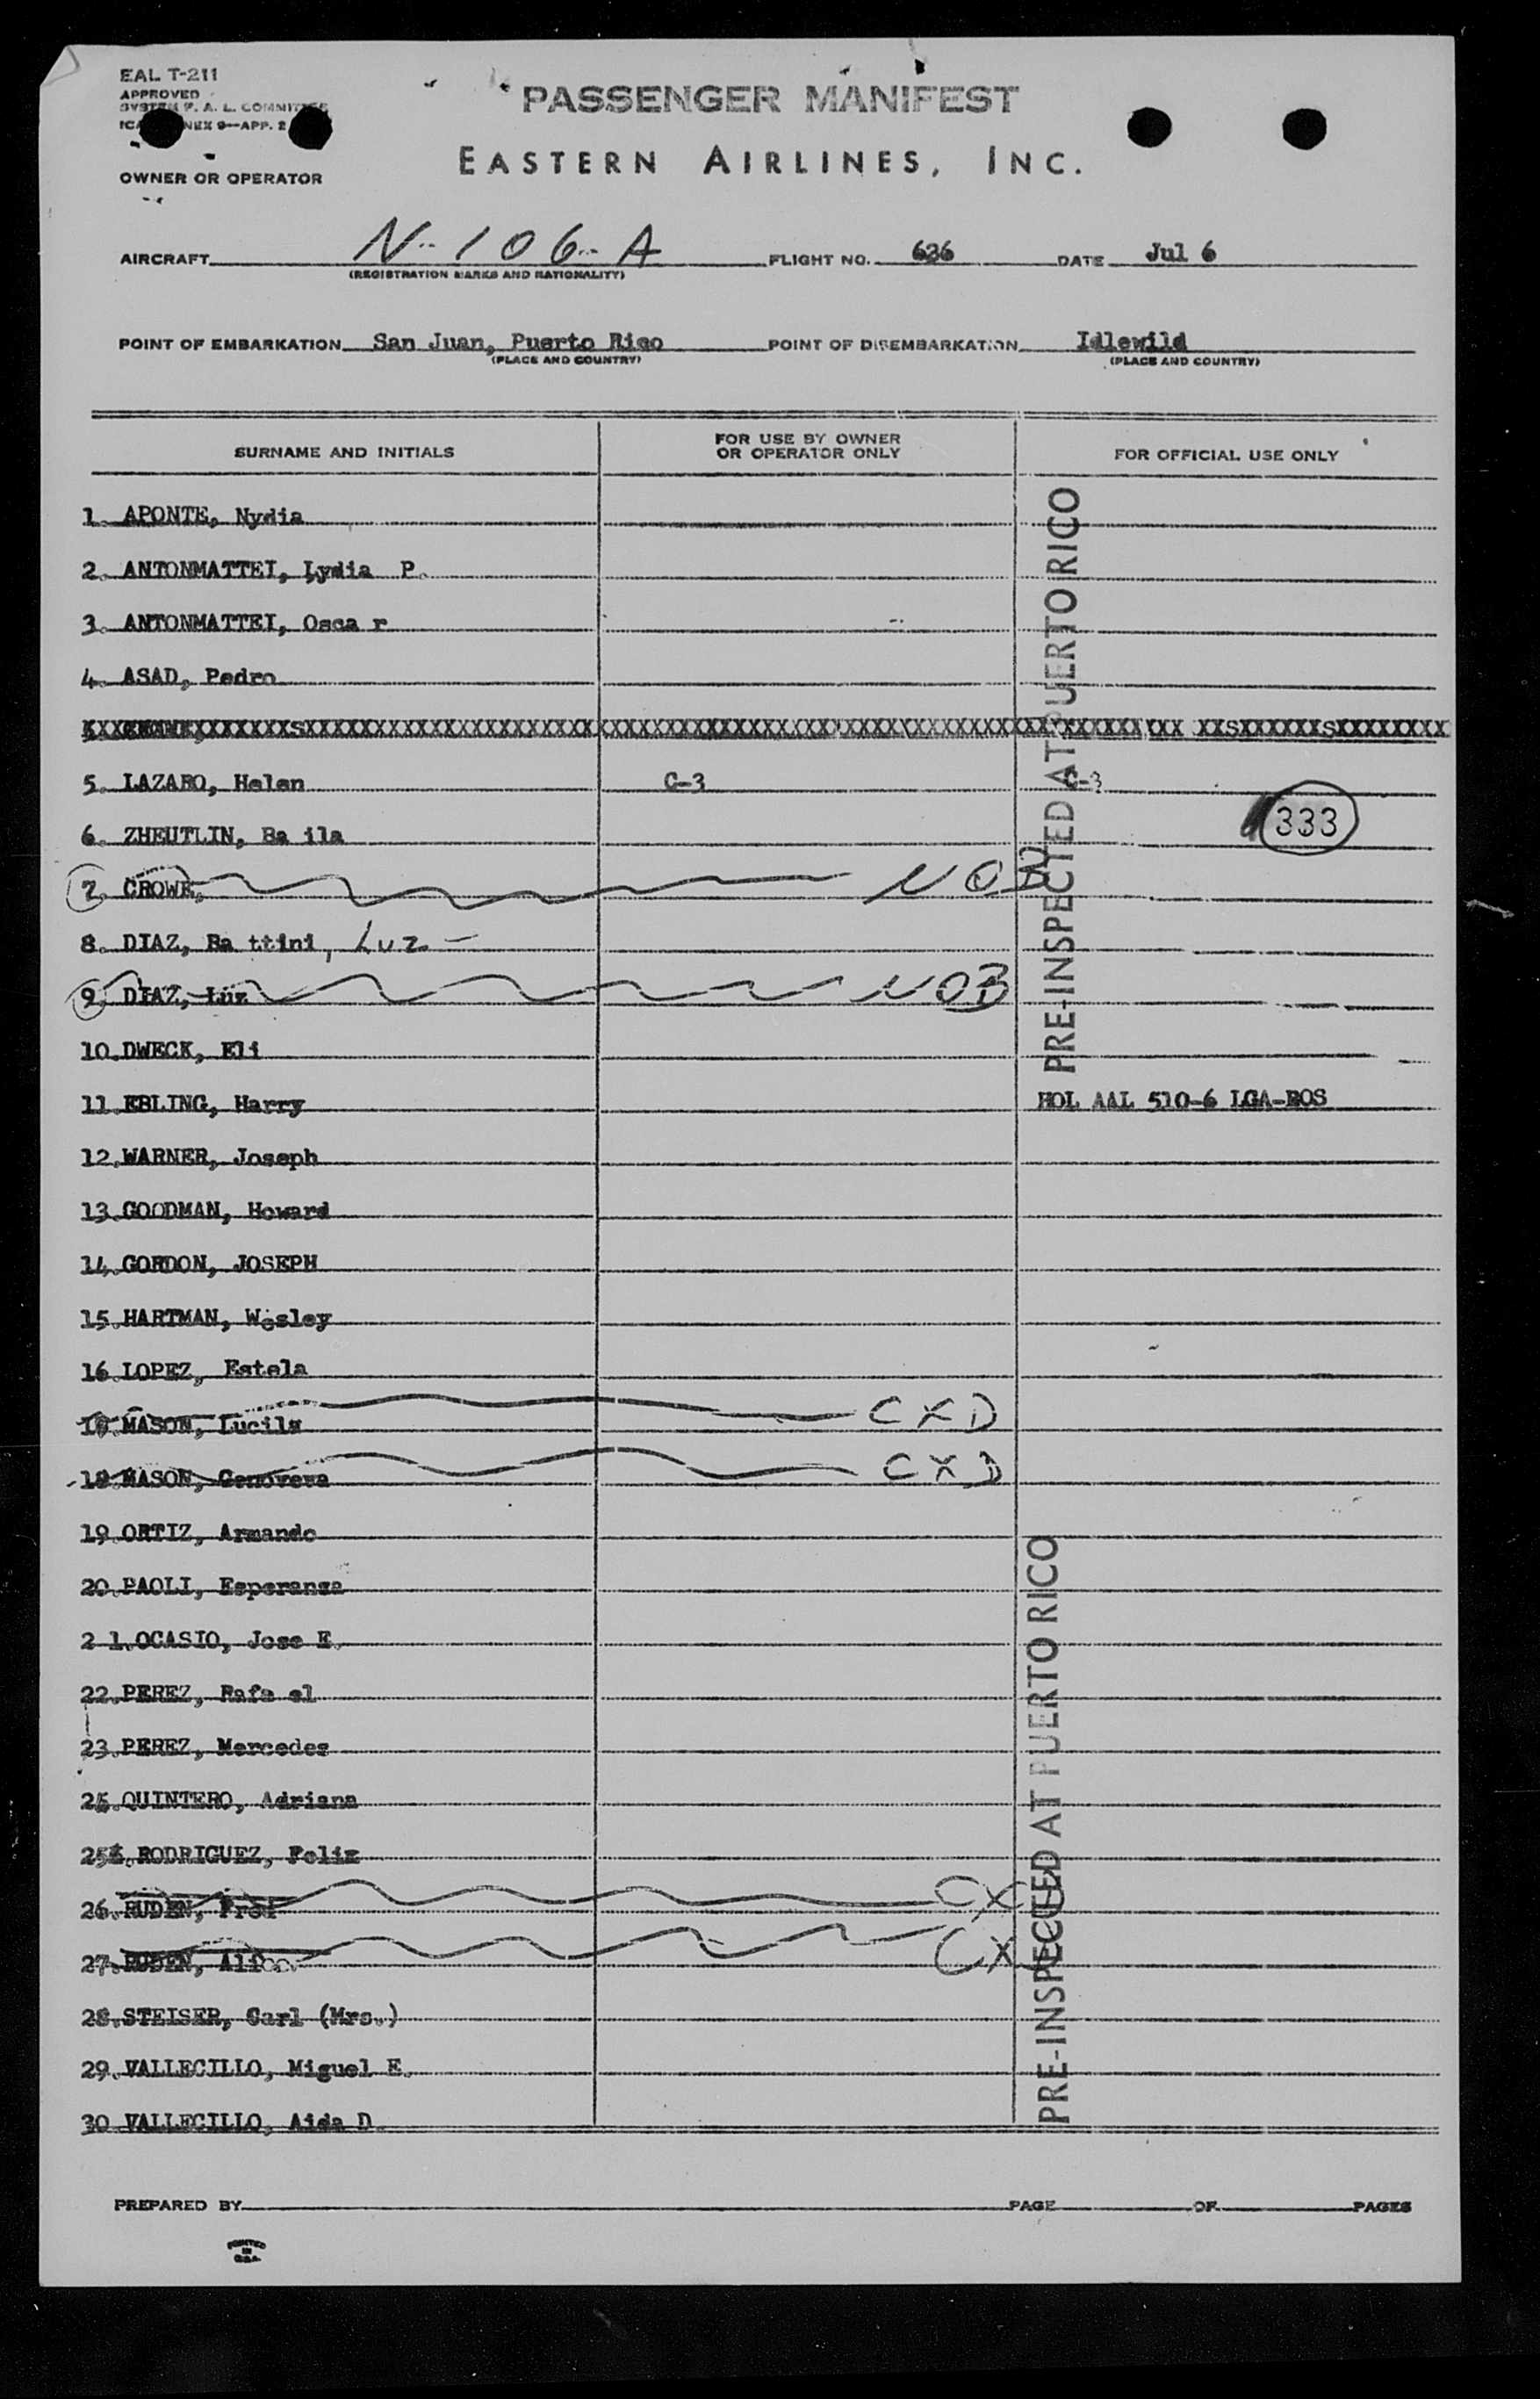 EAL T-211
APPROVED
SYSTEM F. A. L. COMMITTEE
NEX 9—APP. 2
PASSENGER MANIFEST
EASTERN AIRLINES, INC.
OWNER OR OPERATOR
AIRCRAFT N-106-A FLIGHT NO. 636 DATE Jul 6
(REGISTRATION MARKS AND NATIONALITY)
POINT OF EMBARKATION San Juan, Puerto Rico POINT OF DISEMBARKATION Idlewild
(PLACE AND COUNTRY) (PLACE AND COUNTRY)
SURNAME AND INITIALS FOR USE BY OWNER OR OPERATOR ONLY FOR OFFICIAL USE ONLY
1. APONTE, Nydia
2. ANTONMATTEI, Lydia P.
3. ANTONMATTEI, Osca r
4. ASAD, Pedro
5. LAZARO, Helen C-3 C-3
333
6. ZHEUTLIN, Ba ila
7. CROWE, NOB
8. DIAZ, Ba ttini, Luz -
9. DIAZ, Luz NOB
10.DWECK, Eli
11.EBLING, Harry HOL AAL 510-6 LGA-BOS
12.WARNER, Joseph
13.GOODMAN, Howard
14.GORDON, JOSEPH
15.HARTMAN, Wesley
16.LOPEZ, Estela
MASON, Lucila CXD
18.MASON, Genovera CXD
19.ORTIZ, Armando
20.PAOLI, Esperanza
2 1.OCASIO, Jose E.
22.PEREZ, Rafa el
23.PEREZ, Mercedes
QUINTERO, Adriana
25 RODRIGUEZ, Felix
26.RUDEN, Fred CX
27.RUDEN, Alice CX
28.STEISER, Carl (Mrs.)
29.VALLECILLO, Miguel E.
30 VALLECILLO, Aida D.
PRE-INSPECTED AT PUERTO RICO
PRE-INSPECTED AT PUERTO RICO
PREPARED BY PAGE OF PAGES
PRINTED
IN
U.S.A.